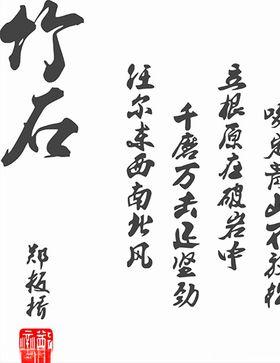 竹石
咬定青山不放松
立根原在破岩中
千磨万击还坚劲
任尔东西南北风
郑板桥